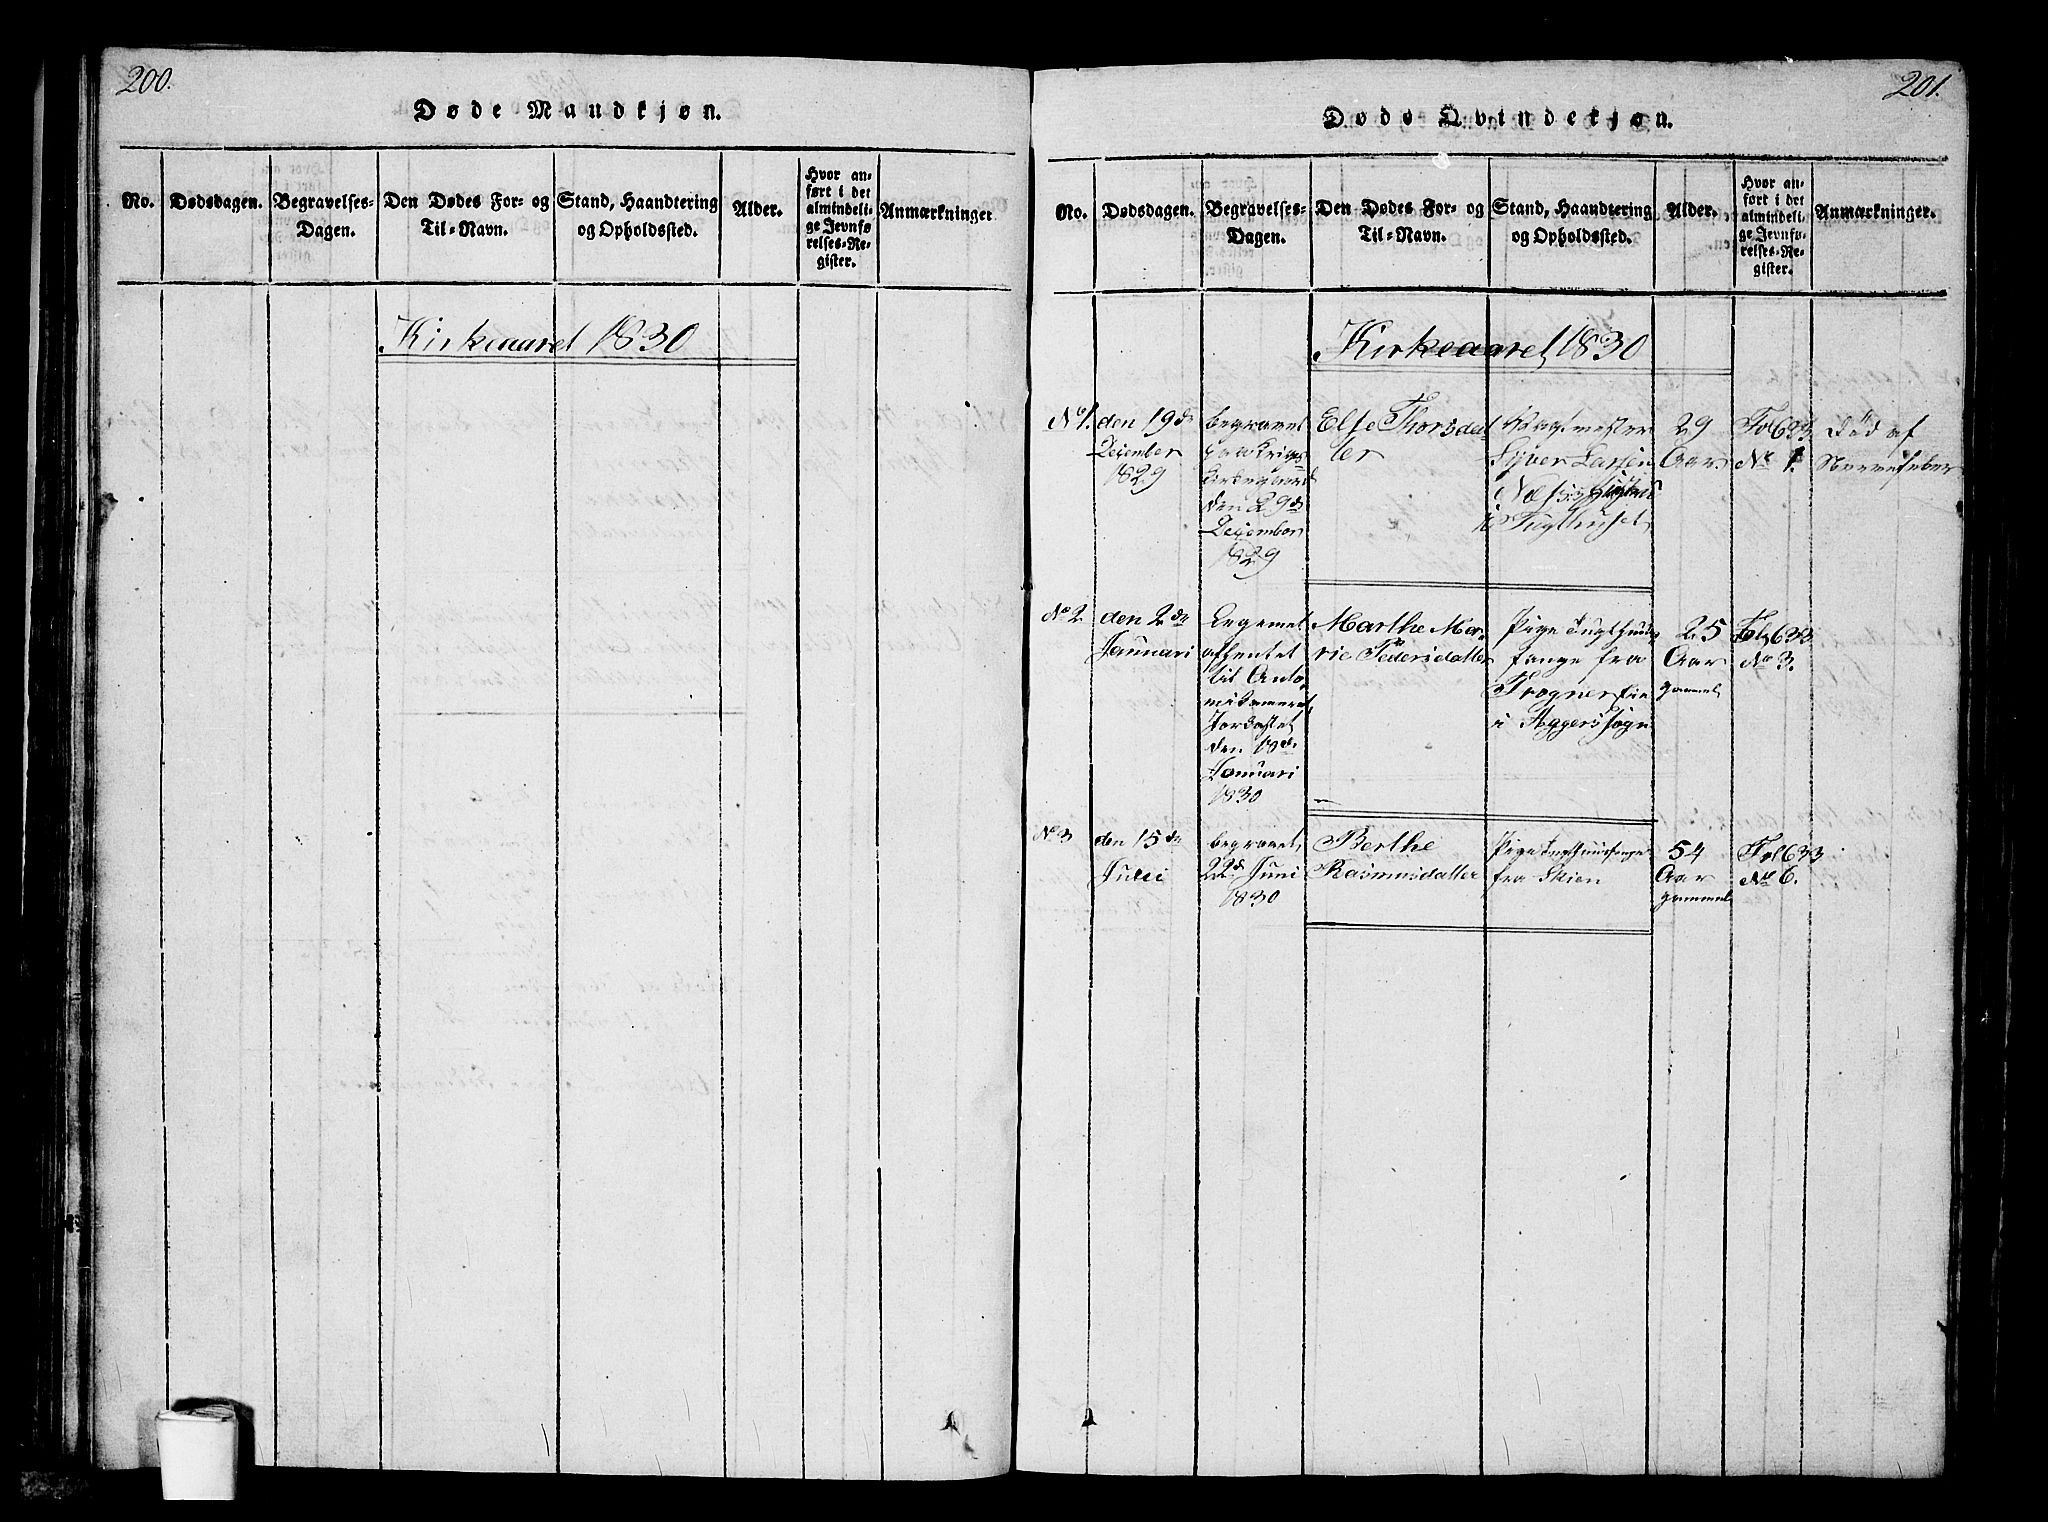 200.
Døde Mandkjøn.
No.
Dødsdagen.
Begravelses-
Dagen.
Den Dødes For- og
Til-Navn.
Stand, Haandtering
og Opholdssted.
Alder.
Hvor an-
ført i det
almindeli-
ge Jevnfø-
relses-Re-
gister.
Anmærkninger
Kirkeaaret 1830
201.
Døde Qvindekjøn.
No.
Dødsdagen.
Begravelses-
Dagen.
Den Dødes For- og
Til-Navn.
Stand, Haandtering
og Opholdssted.
Alder.
Hvor an-
ført i det
almindeli-
ge Jevnfø-
relses-Re-
gister.
Anmærkninger.
Kirkeaaret 1830
No 1.
den 19de
December
1829
begravet
paa Krigs
kirkegaard
den 29de
December
1829
Else Thorsdat
ter
Vagtmester
Syver Larsen
Næss
i Tugthuset
29
Aar
Fol 633
No 1.
Død af
Nervefeber
No 2
den 2de
Januari
Legemet
afhentet
til Anato
mikameret
Jordfæstet
den 18de
Januari
1830
Marthe Ma-
rie Pedersdatter
Pige Tugthuus
fange fra
Frogner
i Aggers Sogn
25
Aar
gammel
Fol 633
No 3.
No 3
den 15de
Juni
begravet
22de Juni
1830
Berthe
Rasmusdatter
Pige Tugthuusfange
fra Skien
54
Aar
gammel
Fol 633
No 6.